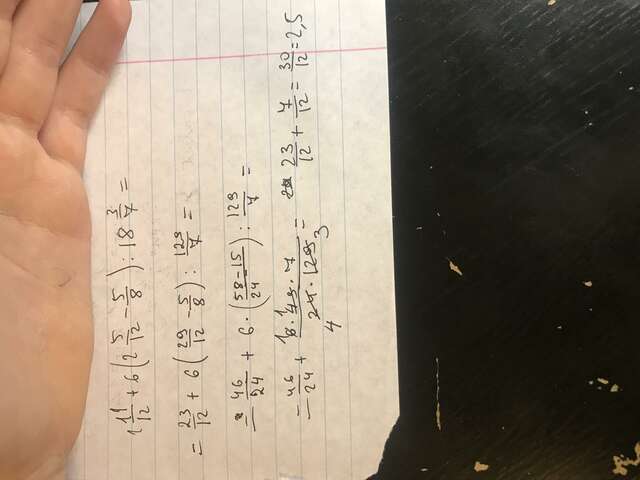 1 11/12 + 6 (2 5/12 - 5/8) : 18 3/7 =
= 23/12 + 6 (29/12 - 5/8) : 129/7 =
= 46/24 + 6 · (58-15/24) : 129/7 =
= 46/24 + 6 · 43 · 7/24 · 129 = 23/12 + 7/12 = 30/12 = 2,5
1
4 3